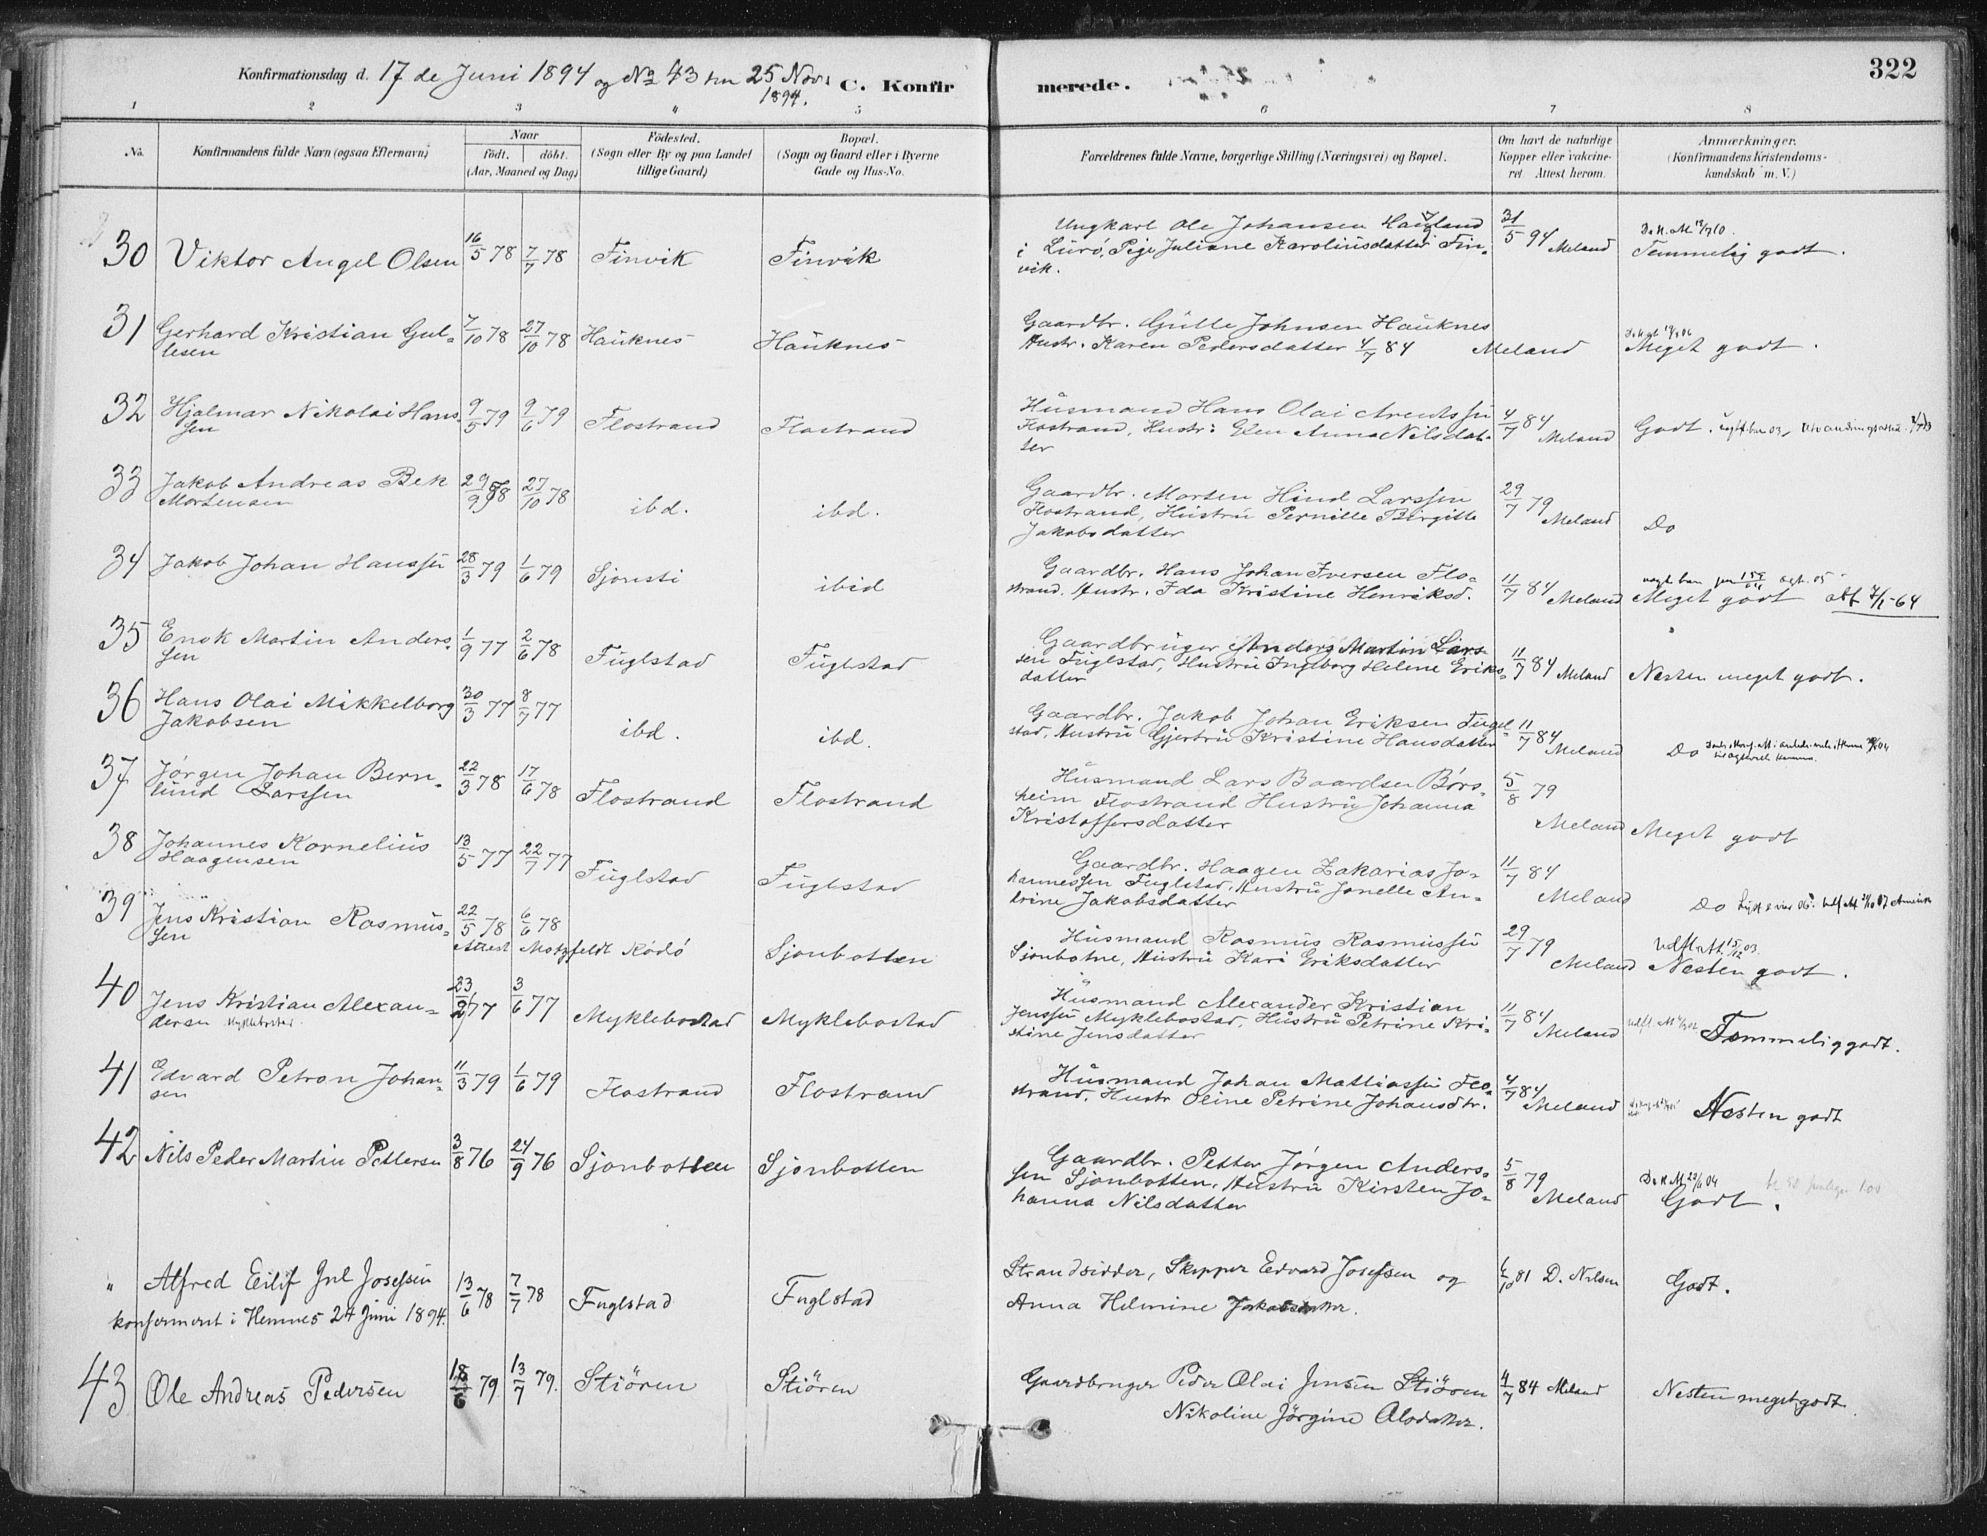 Konfirmationsdag d. 17 de Juni 1894 og No 43 den 25 Nov. 1894. C. Konfirmerede. 322
1 2 3 4 5 6 7 8
No. Konfirmandens fulde Navn (ogsaa Efternavn) Naar födt. döbt. (Aar, Maaned og Dag) Födested. (Sogn eller By og paa Landet tillige Gaard) Bopæl. (Sogn og Gaard eller i Byerne Gade og Hus-No. Forældrenes fulde Navne, borgerlige Stilling (Næringsvei) og Bopæl. Om havt de naturlige Kopper eller vakcineret. Attest herom. Anmærkninger. (Konfirmandens Kristendomskundskab m. V.)
30 Viktor Angel Olsen 16/5 78 7/7 78 Finvik Finvik Ungkarl Ole Johansen Haugland
i Lurö, Pige Juliane Karoliusdatter Fin-
vik. 31/5 94 Meland Temmelig godt.
31 Gerhard Kristian Gul-
lesen 7/10 78 27/10 78 Hauknes Hauknes Gaardbr. Gulle Johnsen Hauknes
Hustr. Karen Pedersdatter 4/7 84 Meland Meget godt.
32 Hjalmar Nikolai Hans-
sen 9/5 79 9/6 79 Flostrand Flostrand Husmand Hans Olai Arentssen
Flostrand, Hustr: Elen Anna Nilsdat-
ter 4/7 84 Meland Godt.
33 Jakob Andreas Bek
Mortensen 29/9 78 27/10 78 ibd. ibd. Gaardbr. Morten Hind Larssen
Flostrand, Hustru Pernille Birgitte
Jakobsdatter 29/7 79 Meland Do
34 Jakob Johan Hanssen 28/3 79 1/6 79 Sjonsti ibid Gaardbr. Hans Johan Iversen Flo-
strand. Hustr. Ida Kristine Henriksd. 11/7 84 Meland Meget godt
35 Enok Martin Anders-
sen 1/9 77 2/6 78 Fuglstad Fuglstad Gaardbruger Anders Martin Lars-
sen Fuglstad, Hustru Ingeborg Helene Eriks-
datter 11/7 84 Meland Nesten meget godt.
36 Hans Olai Mikkelborg
Jakobsen 30/3 77 8/7 77 ibd. ibd. Gaardbr. Jakob Johan Eriksen Fugl-
stad, Hustru Gjertru Kristine Hansdatter 11/7 84 Meland Do
37 Jørgen Johan Bern-
lund Larssen 22/3 78 17/6 78 Flostrand Flostrand Husmand Lars Baardsen Børs-
heim Flostrand Hustru Johanna
Kristoffersdatter 5/8 79 Meland Meget godt
38 Johannes Kornelius
Haagensen 13/5 77 22/7 77 Fuglstad Fuglstad Gaardbr. Haagen Zakarias Jo-
hannessen Fuglstad, Hustru Jonelle An-
trine Jakobsdatter 11/7 84 Meland Do
39 Jens Kristian Rasmus-
sen 22/5 78 6/6 78
Attest Motzfeldt Rödö Sjonbotten Husmand Rasmus Rasmussen
Sjonbotne, Hustru Kari Eriksdatter 29/7 79 Meland Udfl. Att. 15/12 03.
Nesten godt.
40 Jens Kristian Alexan-
dersen Myklebostad 23/2 77 3/6 77 Myklebostad Myklebostad Husmand Alexander Kristian
Jenssen Myklebostad, Hustru Petrine Kri-
stine Jensdatter 11/7 84 Meland Temmelig godt.
41 Edvard Petron Johan-
sen 11/3 79 1/6 79 Flostrand Flostrand Husmand Johan Mattiassen Flo-
strand. Hustr Oline Petrine Johansdtr. 4/7 84 Meland Nesten godt
42 Nils Peder Martin Pettersen 3/8 76 24/9 76 Sjonbotten Sjonbotten Gaardbr. Petter Jørgen Anders-
sen Sjonbotten, Hustru Kirsten Jo-
hanna Nilsdatter 5/8 79 Meland Godt.
" Alfred Eilif Jul Josefsen
konfirmeret i Hemnes 24 Juni 1894. 13/6 78 7/7 78 Fuglstad Fuglstad Strandsidder, Skipper Edvard Josefsen og
Anna Helmine Jakobsdatter. 81 D. Nilsen Godt.
43 Ole Andreas Pedersen 18/6 79 13/7 79. Stiören Stiören Gaardbruger Peder Olai Jensen Stiören
Nikoline Jörgine Olsdatter. 4/7 84 Meland Nesten meget godt.